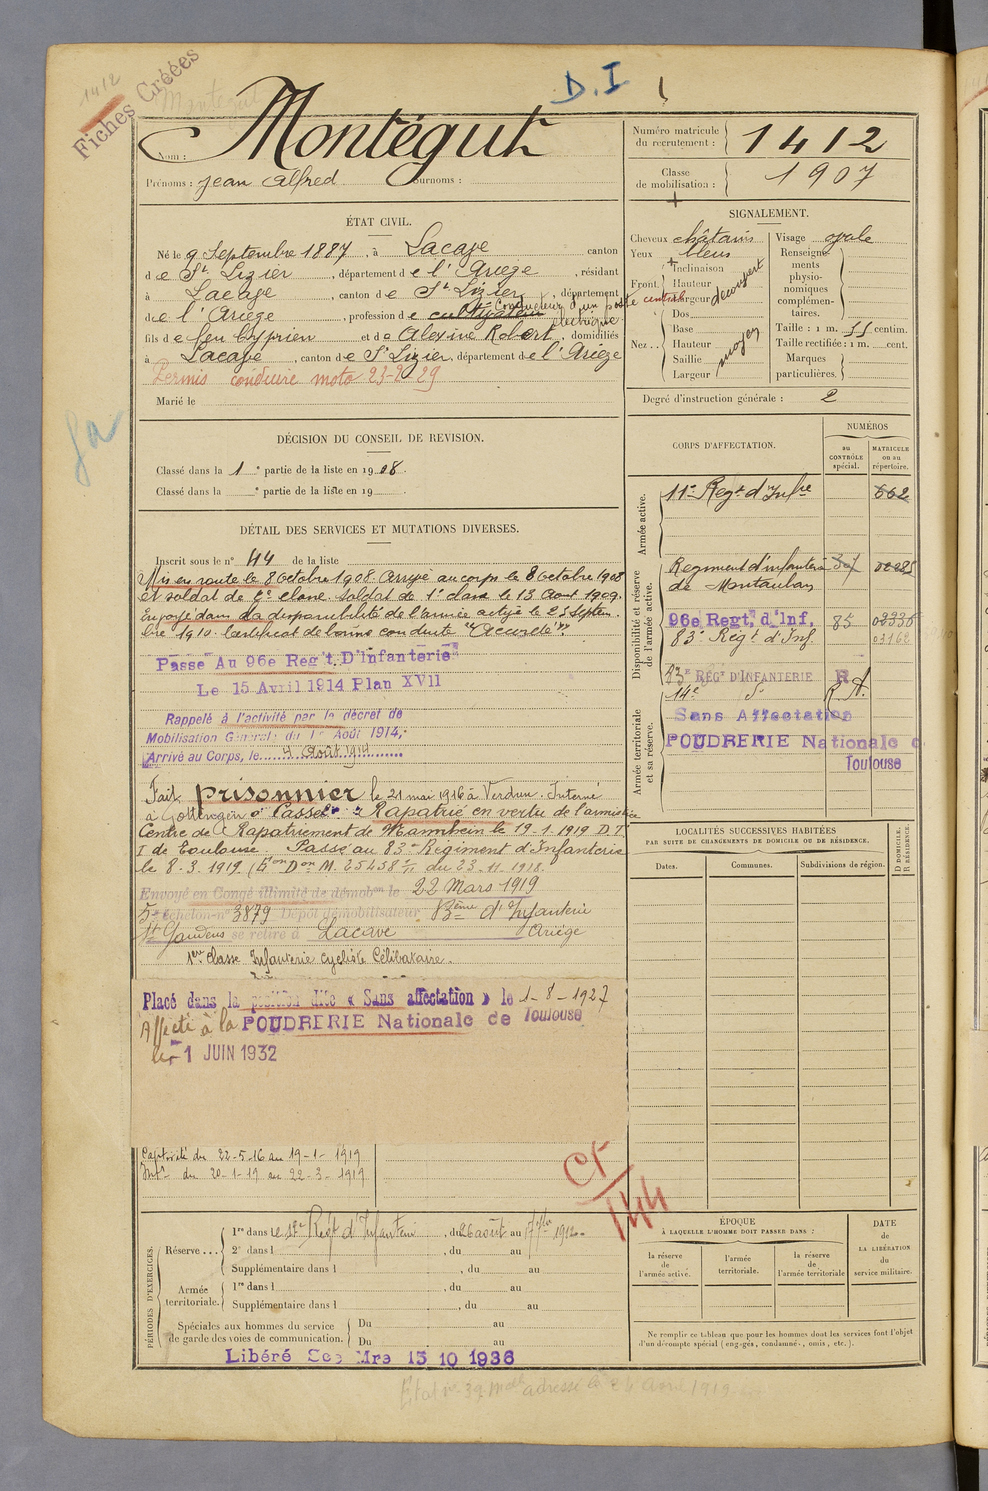 1412
Montégut
Fiches Créées
D.I
Nom : Montégut
Prénoms : Jean Alfred Surnoms :
Numéro matricule du recrutement : 1412
Classe de mobilisation : 1907
ÉTAT CIVIL.
Né le 9 Septembre 1887, à Lacave canton
de St Lizier, département de l'Ariège, résidant
à Lacave, canton de St Lizier, département
de l'Ariège, profession de cultivateur Conducteur d'un poste central électrique
fils de feu Cyprien et de Alexine Robert, domiciliés
à Lacave, canton de St Lizier, département de l'Ariège
Permis conduire moto 23-2-29
Marié le
SIGNALEMENT.
Cheveux châtains
Yeux bleus
Front. Inclinaison
Hauteur
Largeur découvert
Nez... Dos
Base
Hauteur moyen
Saillie
Largeur
Visage ovale
Renseignements physionomiques complémentaires.
Taille : 1 m. 55 centim.
Taille rectifiée : 1 m. cent.
Marques particulières.
Degré d'instruction générale : 2
DÉCISION DU CONSEIL DE REVISION.
Classé dans la 1e partie de la liste en 1908.
Classé dans la e partie de la liste en 19
ga
DÉTAIL DES SERVICES ET MUTATIONS DIVERSES.
Inscrit sous le n° 44 de la liste
Mis en route le 8 Octobre 1908. Arrivé au corps le 8 Octobre 1908
et soldat de 2e classe. Soldat de 1e classe le 13 Août 1909.
Envoyé dans la disponibilité de l'armée active le 25 Septembre 1910. Certificat de bonne conduite "Accordé".
Passé Au 96e Reg't. D'Infanterie
Le 15 Avril 1914 Plan XVII
Rappelé à l'activité par le décret de
Mobilisation Générale du 1er Août 1914,
Arrivé au Corps, le 4 Août 1914
Fait prisonnier le 21 mai 1916 à Verdun. Interné
à Gottingen & Cassel. Rapatrié en vertu de l'armistice
Centre de Rapatriement de Mannheim le 19-1-1919 D.T
I de Toulouse. Passé au 83e Régiment d'Infanterie
le 8-3-1919 du 23-11-1918.
Envoyé en Congé illimité de démobon le 22 Mars 1919
5e échelon-n° 3879 Dépôt démobilisateur 83ème d'Infanterie
St Gaudens se retire à Lacave Ariège
1ère classe Infanterie cycliste Célibataire.
Placé dans la position dite « Sans affectation » le 1-8-1927
Affecté à la POUDRERIE Nationale de Toulouse
le -1 JUIN 1932
Captivité du 22-5-16 au 19-1-1919
Intr du 20-1-19 au 22-3-1919
CR/144
CORPS D'AFFECTATION.
NUMÉROS
au CONTRÔLE spécial.
MATRICULE ou au répertoire.
Armée active.
11e Regt d'Infre 662
Disponibilité et réserve de l'armée active.
Régiment d'infanterie de Montauban
96e Regt, d'Inf, 85
83e Régt d'Inf 03162
Armée territoriale et sa réserve.
RÉGt D'INFANTERIE R
14e
Sans Affectation
POUDRERIE Nationale de
Toulouse
LOCALITÉS SUCCESSIVES HABITÉES
PAR SUITE DE CHANGEMENTS DE DOMICILE OU DE RÉSIDENCE.
Dates. Communes. Subdivisions de région. D DOMICILE. R RÉSIDENCE.
PÉRIODES D'EXERCICES.
Réserve... 1re dans le Régt d'Infanterie, du 26 août au 1912
2e dans l , du au
Supplémentaire dans l , du au
Armée territoriale. 1re dans l , du au
Supplémentaire dans l , du au
Spéciales aux hommes du service de garde des voies de communication. Du au
Du au
Libéré Mre 15 10 1936
ÉPOQUE
À LAQUELLE L'HOMME DOIT PASSER DANS :
la réserve de l'armée active.
l'armée territoriale.
la réserve de l'armée territoriale
DATE de LA LIBÉRATION du service militaire.
Ne remplir ce tableau que pour les hommes dont les services font l'objet
d'un décompte spécial (engagés, condamnés, omis, etc.).